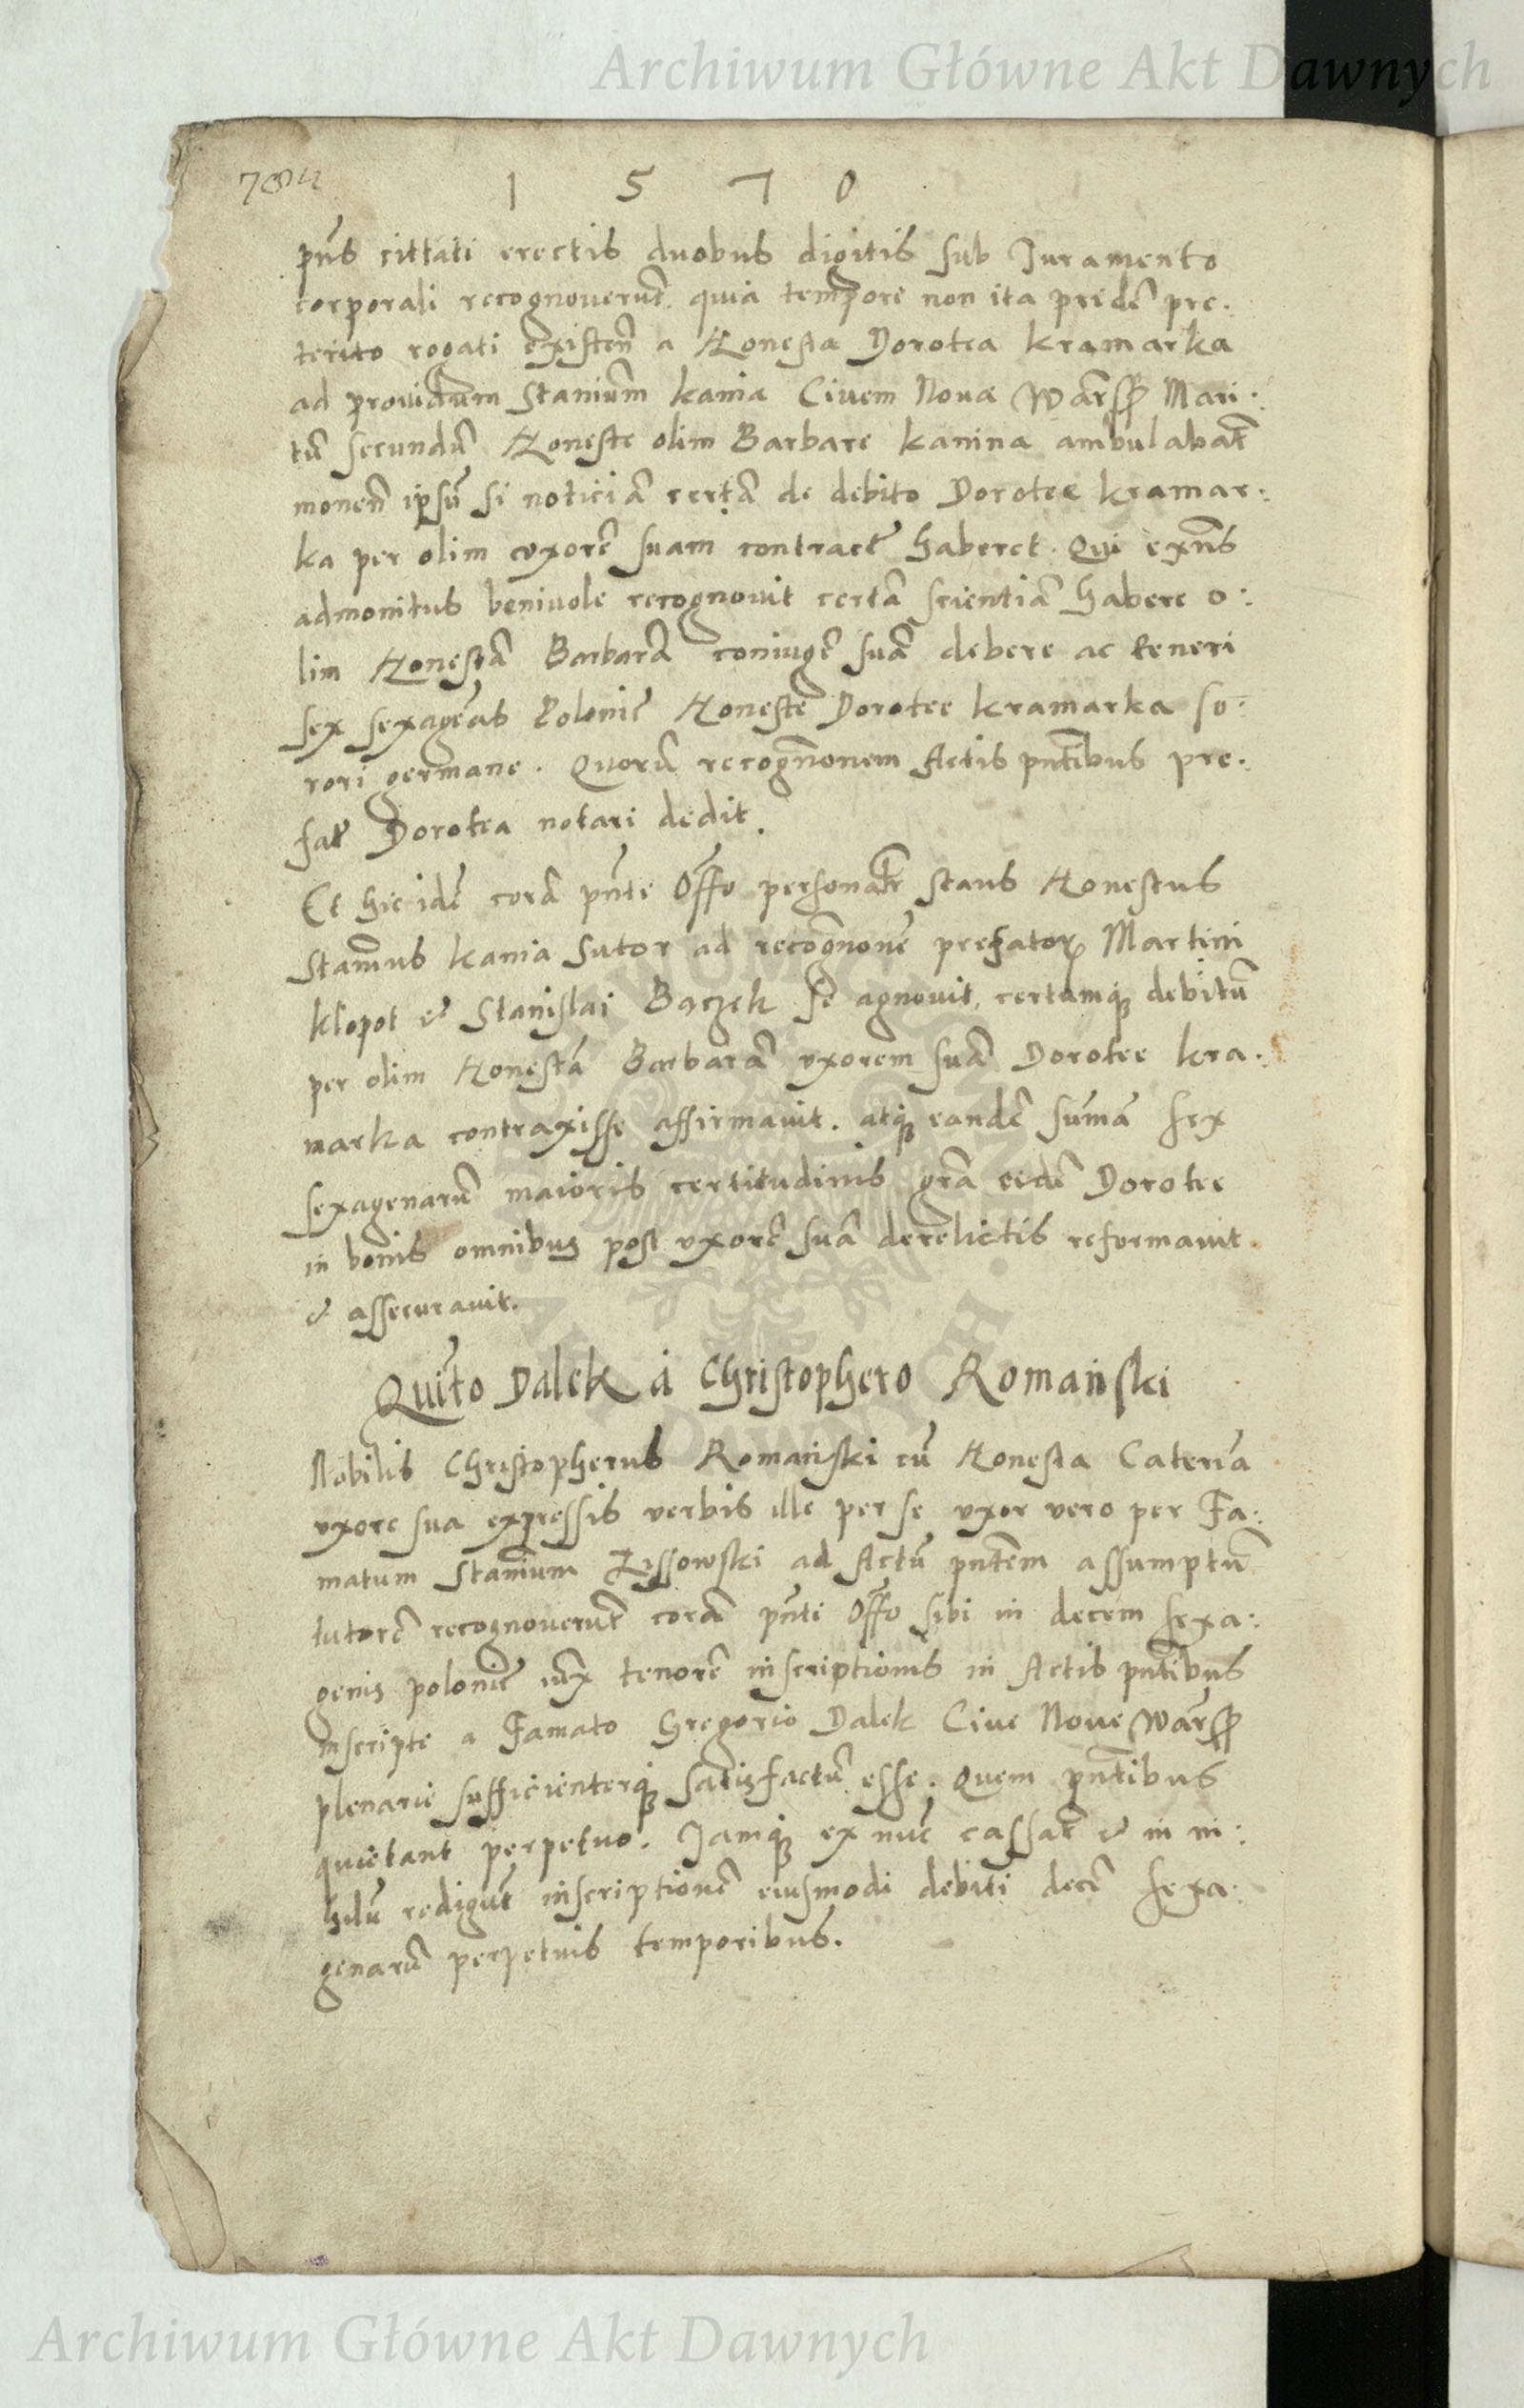 Archiwum Główne Akt Dawnych
784
1 5 7 0
pñs cittati erectis duobus digitis sub Juramento
corporali recognoverũt. quia tempore non ita pridẽ pre.
terito rogati existeñ a Honesta Dorotea kramarka
ad providum Stanium̃ kania Civem Nova Warss Mari:
tũ secundũ Honeste olim Barbare kanina ambulabãt
moneñ ipsũ si noticiã certã de debito Dorotee kramar:
ka per olim vxorẽ suam contractẽ haberet. Qui exñs
admonitus benivole recognovit certã scientiã habere o:
lim Honestã Barbarã coniugẽ suã debere ac teneri
sex sexageñas Polonic̃ Honeste Dorotee kramarka so:
rori germane. Quorũ recogñonem Actis pñtibus pre.
fat̃ Dorotea notari dedit.
Et hic idẽ corã pñte Offo personalr̃ stans Honestus
Stañus kania Sutor ad recogñonẽ prefator Martini
klopot & Stanislai Bączek se agnovit, certamq debitũ
per olim Honestã Barbarã vxorem suã Dorotee kra.
marka contraxisse affirmavit. atq eandẽ sum̃ã sex
sexagenarũ maioris certitudinis gr̃a eidẽ Dorotee
in bonis omnibus post vxorẽ suã derelictis reformavit
& assecuravit.
Quito Dalek á Christophero Romański
Nobilis Christopherus Romański cũ Honesta Caterĩa
vxore sua expressis verbis ille per se vxor vero per Fa:
matum Stanium̃ Lissowski ad Actũ pñtem assumptũ
tutorẽ recognoverũt corã pñti Offo sibi in decem sexa:
genis polonic̃ iux̃ tenorẽ inscriptionis in Actis pñtibus
inscripte a Famato Gregorio Dalek Cive Nove Warss
plenarie sufficienterq satisfactũ esse. Quem pñtibus
quietant perpetuo. Jamq ex nũc cassãt & in ni:
hilũ redigũt inscriptionẽ eiusmodi debiti decẽ sexa:
genarũ perpetuis temporibus.
Archiwum Główne Akt Dawnych